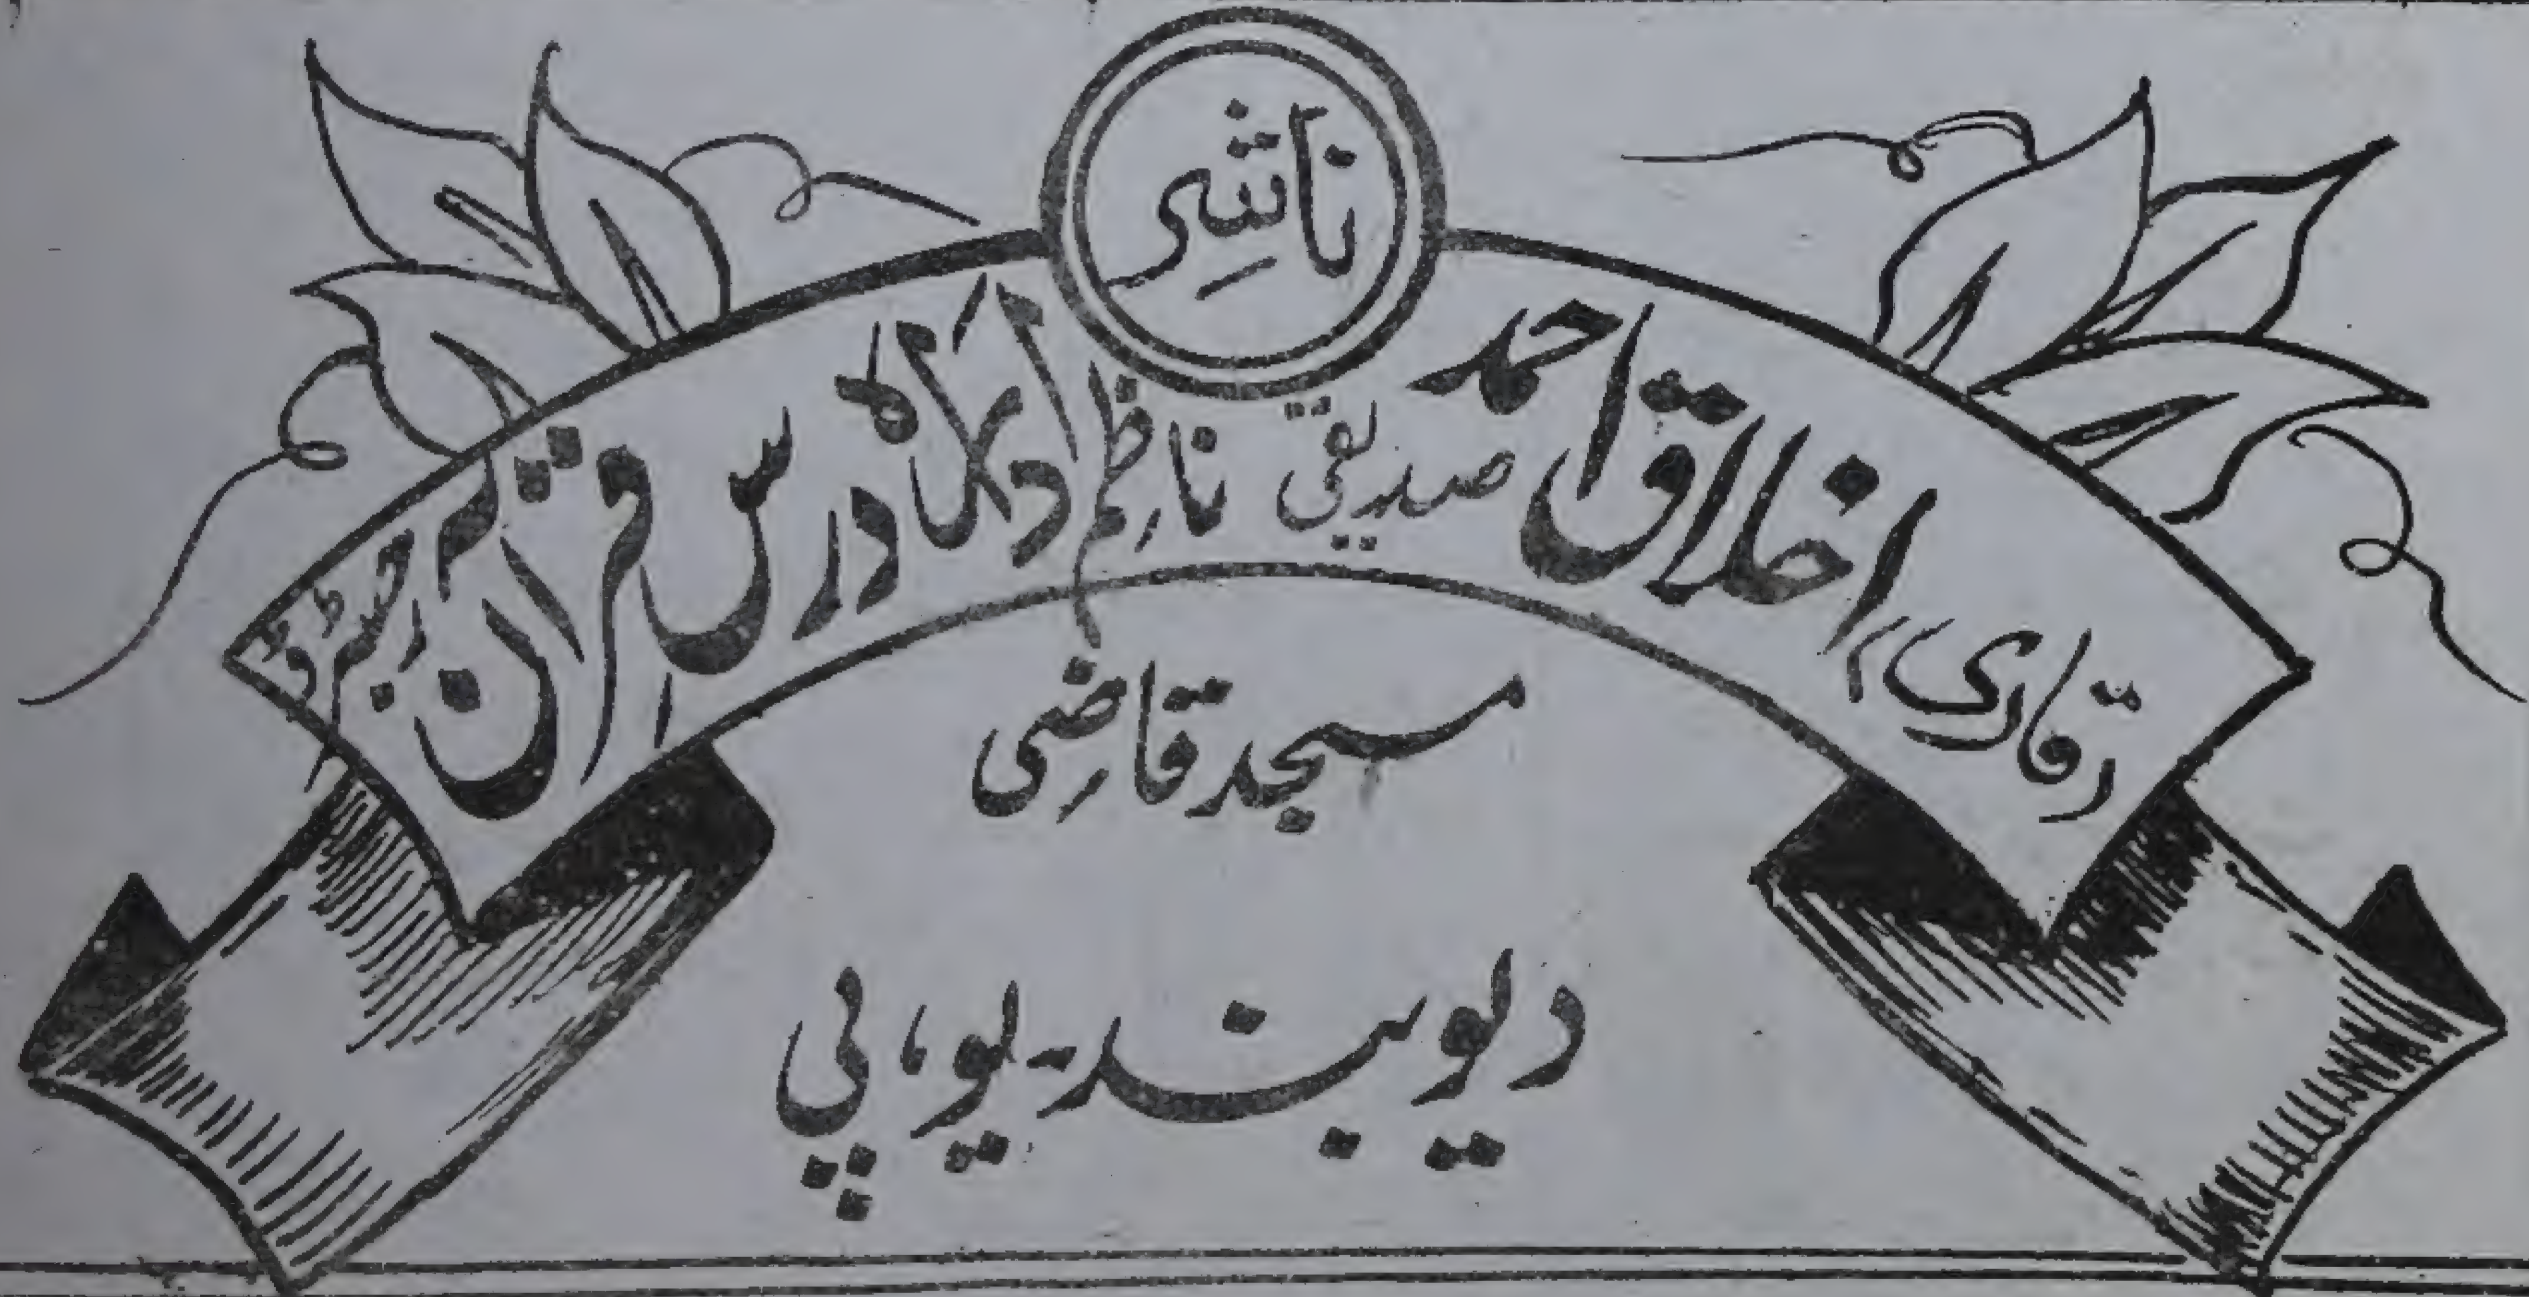 ناشِر
(قاری) اخلاق احمد صدیقی ناظِم ادارۂ درس قرآن رجسٹرڈ
مسجد قاضِی
دیوبند۔ یو، پی